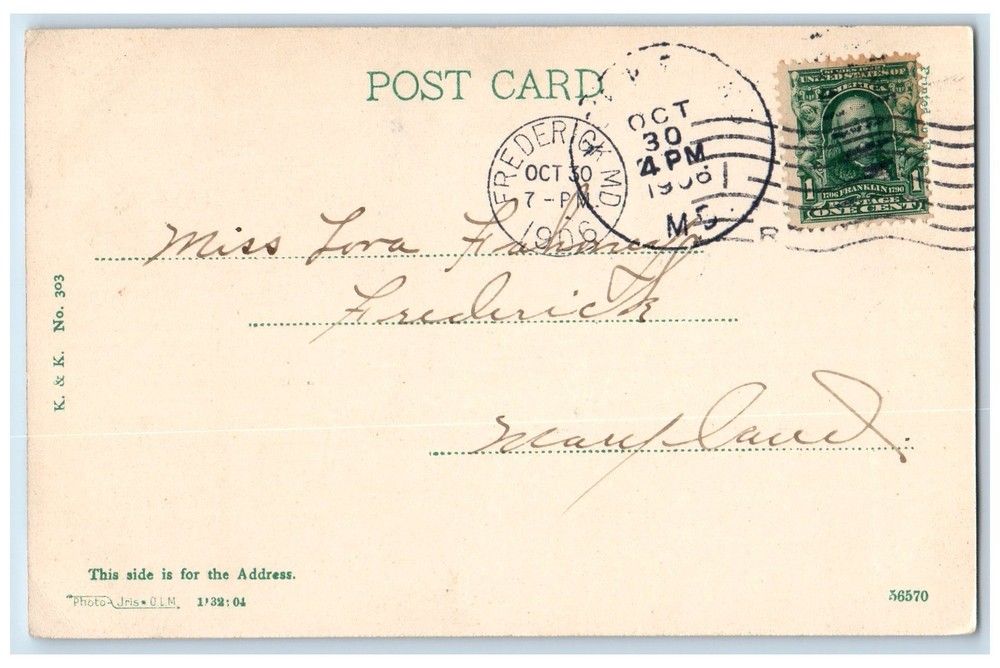 POST CARD
FREDERICK, MD
OCT 30
7-PM
1906
OCT
30
4 PM
1906
MD
SERIES 1902
UNITED STATES OF
AMERICA
1706 FRANKLIN 1790
1 POSTAGE 1
ONE CENT
R
Printed
Miss Lora Fahrney
Frederick
Maryland.
K. & K. No. 303
This side is for the Address.
"Photo-Jris" O L M. 1132:04
56570